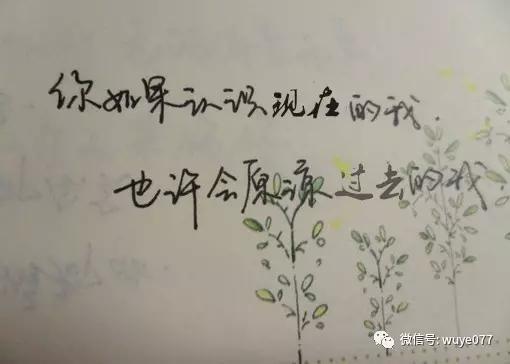 你如果认识现在的我.
也许会原谅过去的我
微信号: wuye077